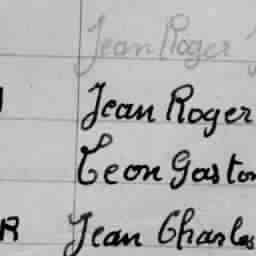 Jean Roger
Jean Roger
Leon Gaston
R Jean Charles